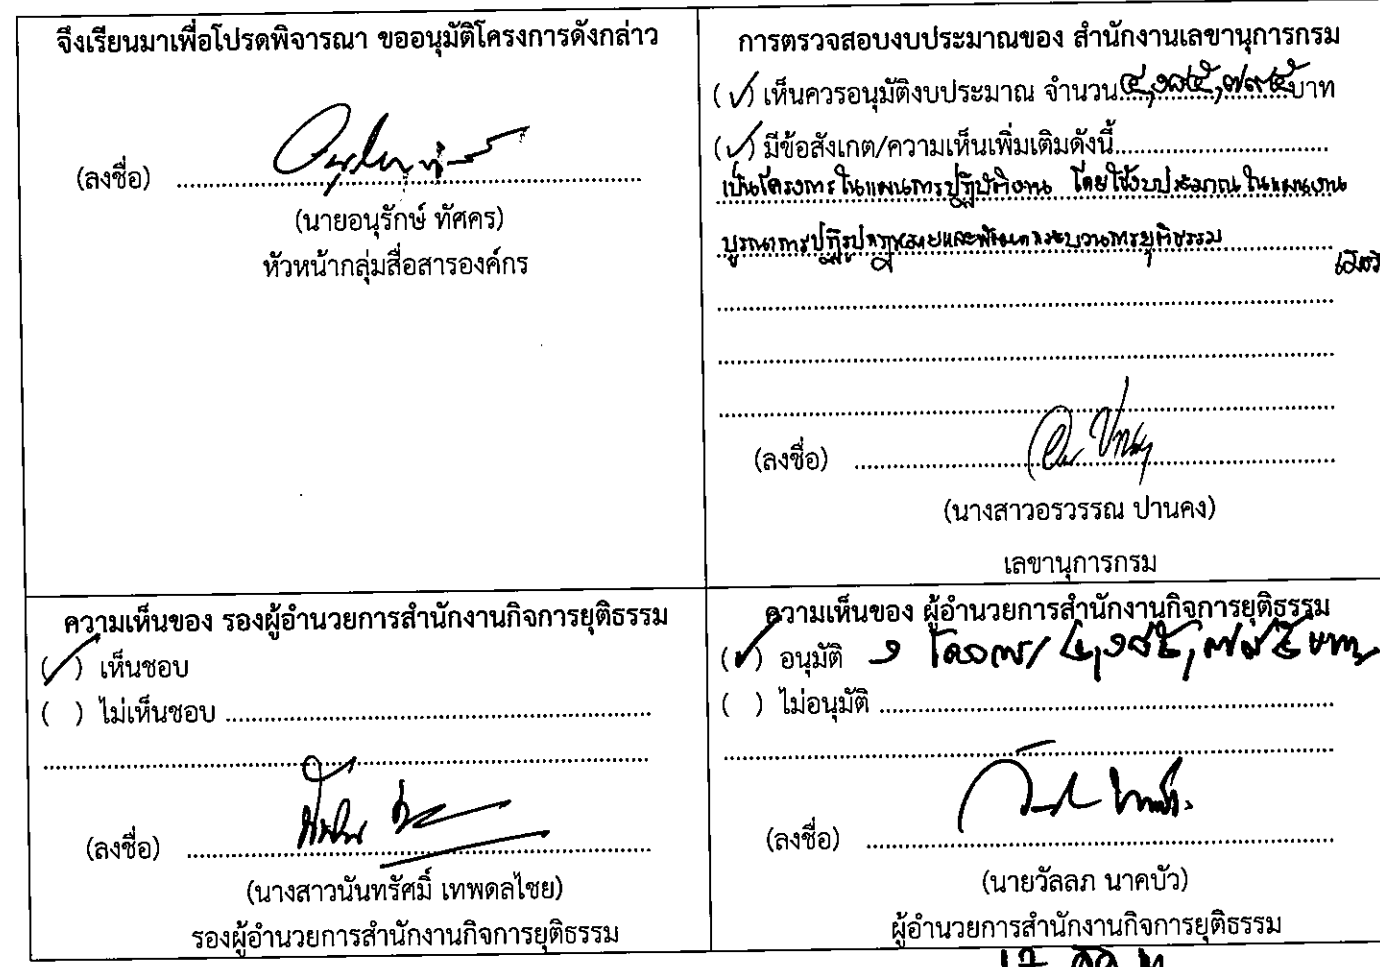 จึงเรียนมาเพื่อโปรดพิจารณา ขออนุมัติโครงการดังกล่าว
(ลงชื่อ)
(นายอนุรักษ์ ทัศคร)
หัวหน้ากลุ่มสื่อสารองค์กร
การตรวจสอบงบประมาณของ สำนักงานเลขานุการกรม
(✓) เห็นควรอนุมัติงบประมาณ จำนวน ๔,๑๘๕,๗๙๕ บาท
(✓) มีข้อสังเกต/ความเห็นเพิ่มเติมดังนี้
เป็นโครงการในแผนการปฏิบัติงาน โดยใช้งบประมาณในแผนงาน
บูรณาการปฏิรูปกฎหมายและพัฒนากระบวนการยุติธรรม
(ลงชื่อ)
(นางสาวอรวรรณ ปานคง)
เลขานุการกรม
ความเห็นของ รองผู้อำนวยการสำนักงานกิจการยุติธรรม
(✓) เห็นชอบ
( ) ไม่เห็นชอบ
(ลงชื่อ)
(นางสาวนันทรัศมิ์ เทพดลไชย)
รองผู้อำนวยการสำนักงานกิจการยุติธรรม
ความเห็นของ ผู้อำนวยการสำนักงานกิจการยุติธรรม
(✓) อนุมัติ ๑ โครงการ/ ๔,๑๘๕,๗๙๕ บาท
( ) ไม่อนุมัติ
(ลงชื่อ)
(นายวัลลภ นาคบัว)
ผู้อำนวยการสำนักงานกิจการยุติธรรม